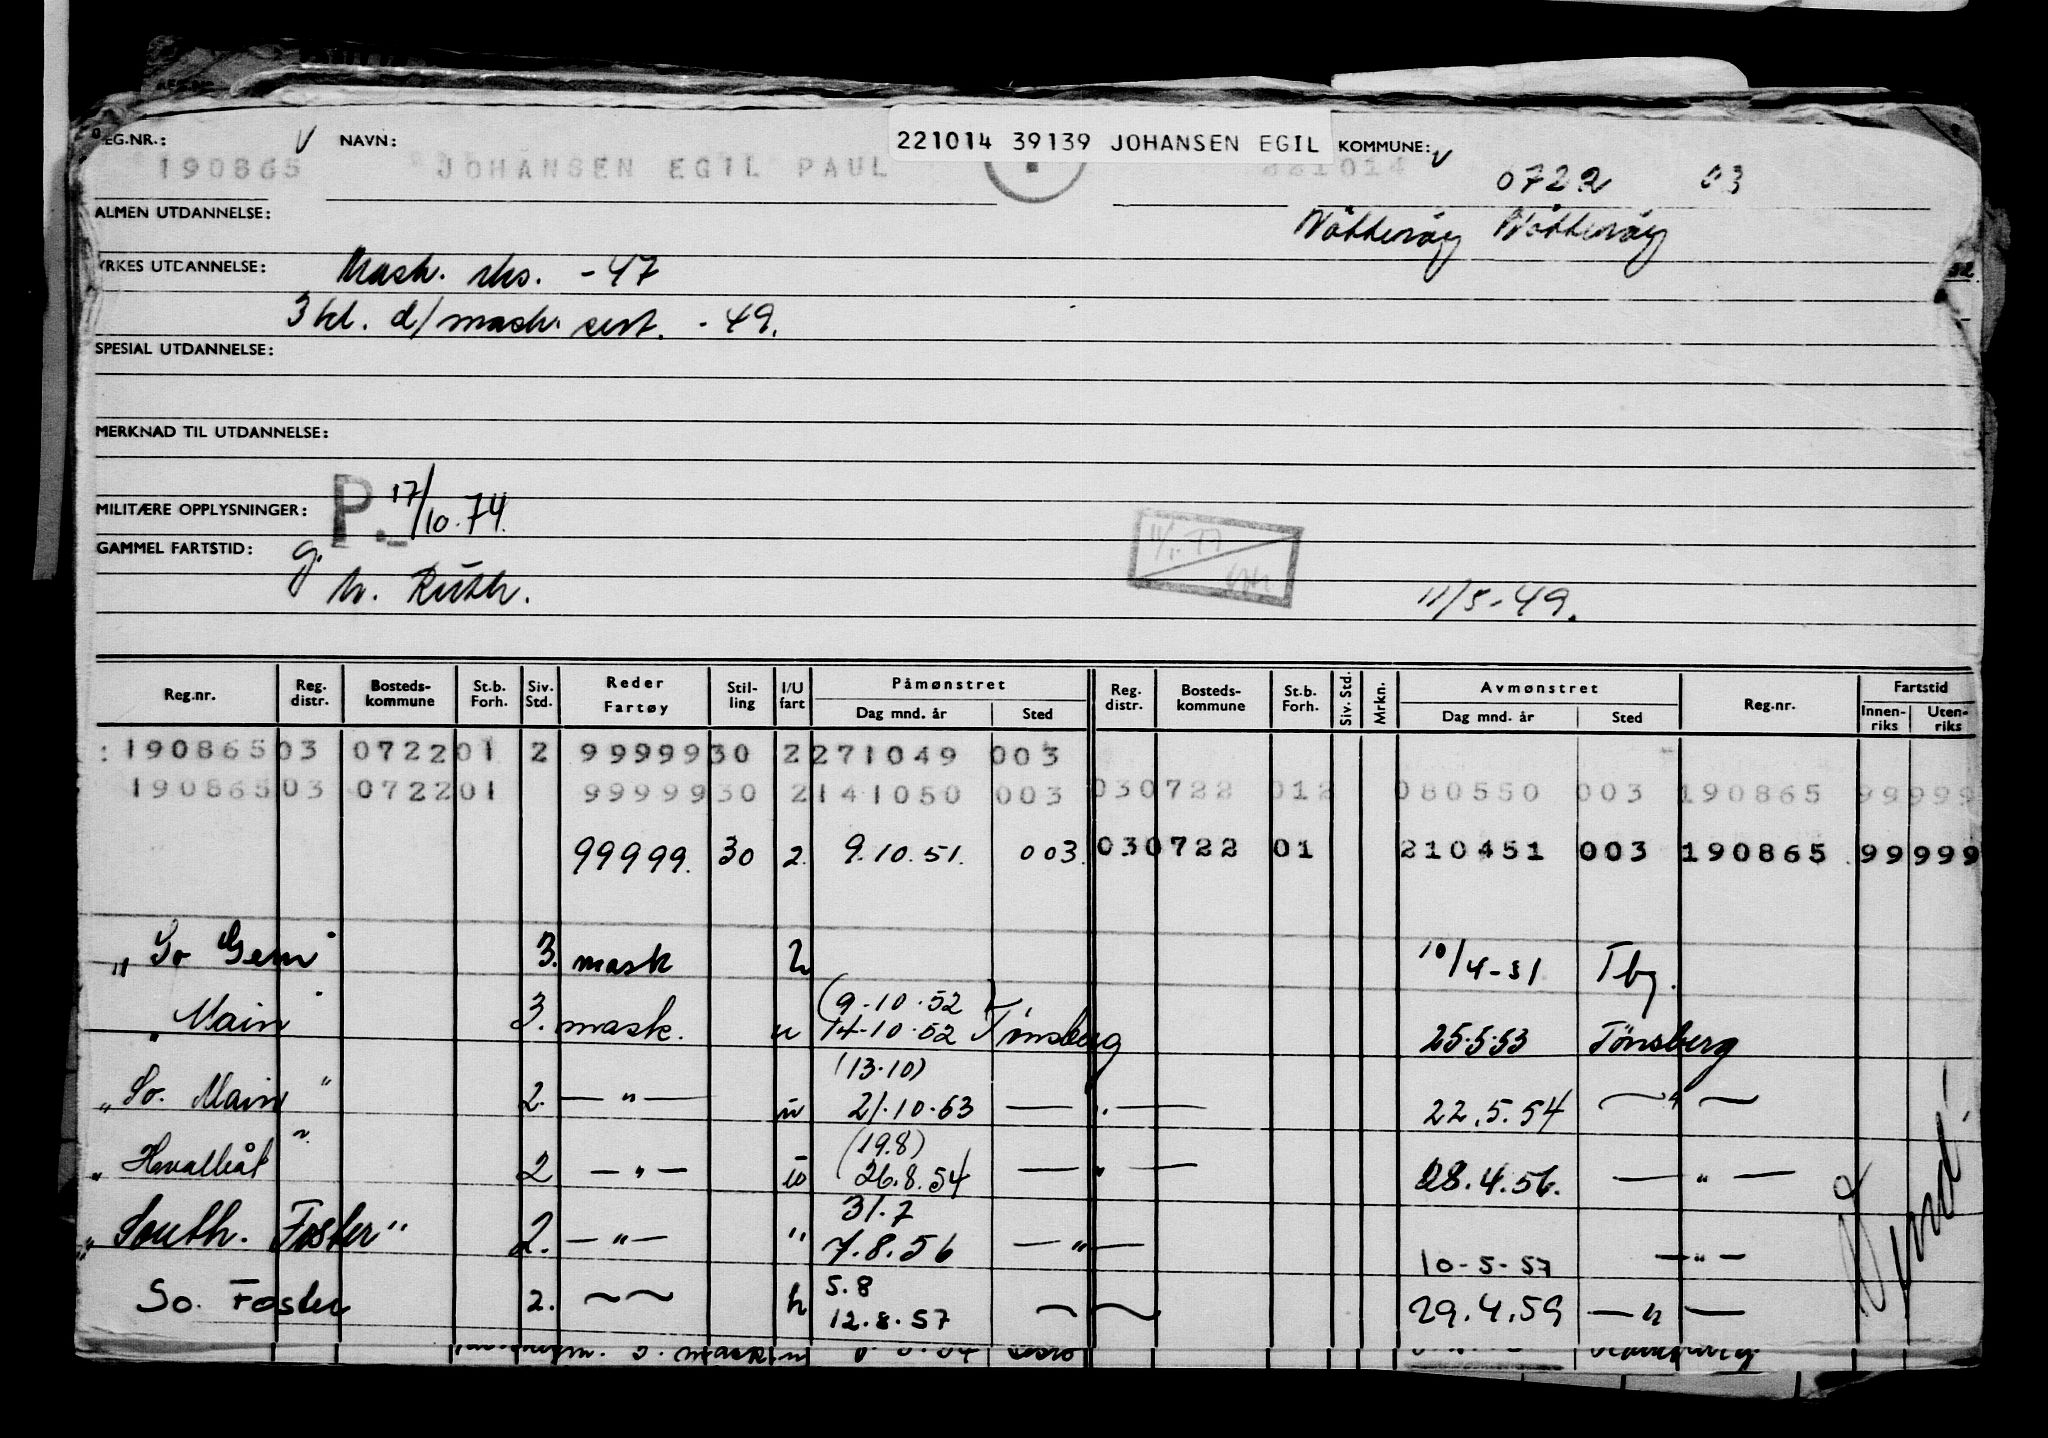 221014 39139 JOHANSEN EGIL
EG.NR.: V NAVN: KOMMUNE: V
190865 JOHANSEN EGIL PAUL 221014 0722 03
ALMEN UTDANNELSE: Nøtterøy Nøtterøy
YRKES UTDANNELSE: Mask. sks. -47
3 kl. d/mask. sert. -49.
SPESIAL UTDANNELSE:
MERKNAD TIL UTDANNELSE:
MILITÆRE OPPLYSNINGER: P. 17/10.74.
GAMMEL FARTSTID: g.
Ruth. 11/5-49.
Reg.nr. Reg. distr. Bosteds- kommune St.b. Forh. Siv. Std. Reder Fartøy Stil- ling I/U fart Påmønstret Dag mnd. år Sted Reg. distr. Bosteds- kommune St.b. Forh. Siv. Std. Mrkn. Avmønstret Dag mnd. år Sted Reg.nr. Fartstid Innen- riks Uten- riks
190865 03 0722 01 2 99999 30 2 271049 003
190865 03 0722 01 99999 30 2 141050 003 03 0722 012 080550 003 190865 99 999
99999. 30 2. 9.10.51. 003. 03 0722 01 210451 003 190865 99 999
" So Gem " 3. mask u 10/4-51 Tbg.
(9.10.52)
" Main " 3. mask. u 14.10.52 Tønsberg 25.5.53 Tønsberg
(13.10)
" So. Main " 2. — " — u 21.10.53 — " — 22.5.54 — " —
(19.8)
" Hvalbåt " 2 — " — u 26.8.54 — " — 28.4.56. — " —
31.7
" South. Foster " 2. — " — " 7.8.56 — " — 10-5-57 — " —
5.8
So. Foster 2. — — u 12.8.57 — — 29.4.59 — " —